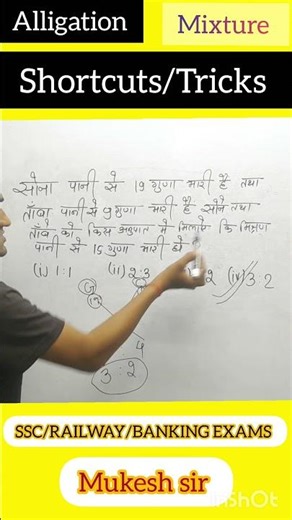 Alligation
Mixture
Shortcuts/Tricks
सोना पानी से 19 गुणा भारी है तथा
ताँबा पानी से 9 गुणा भारी है सोने तथा
ताँबे को किस अनुपात में मिलाये कि मिश्रण
पानी से 15 गुणा भारी हो
(i) 1:1 (ii) 2:3 2 (iv) 3:2
4
3 : 2
SSC/RAILWAY/BANKING EXAMS
Mukesh sir